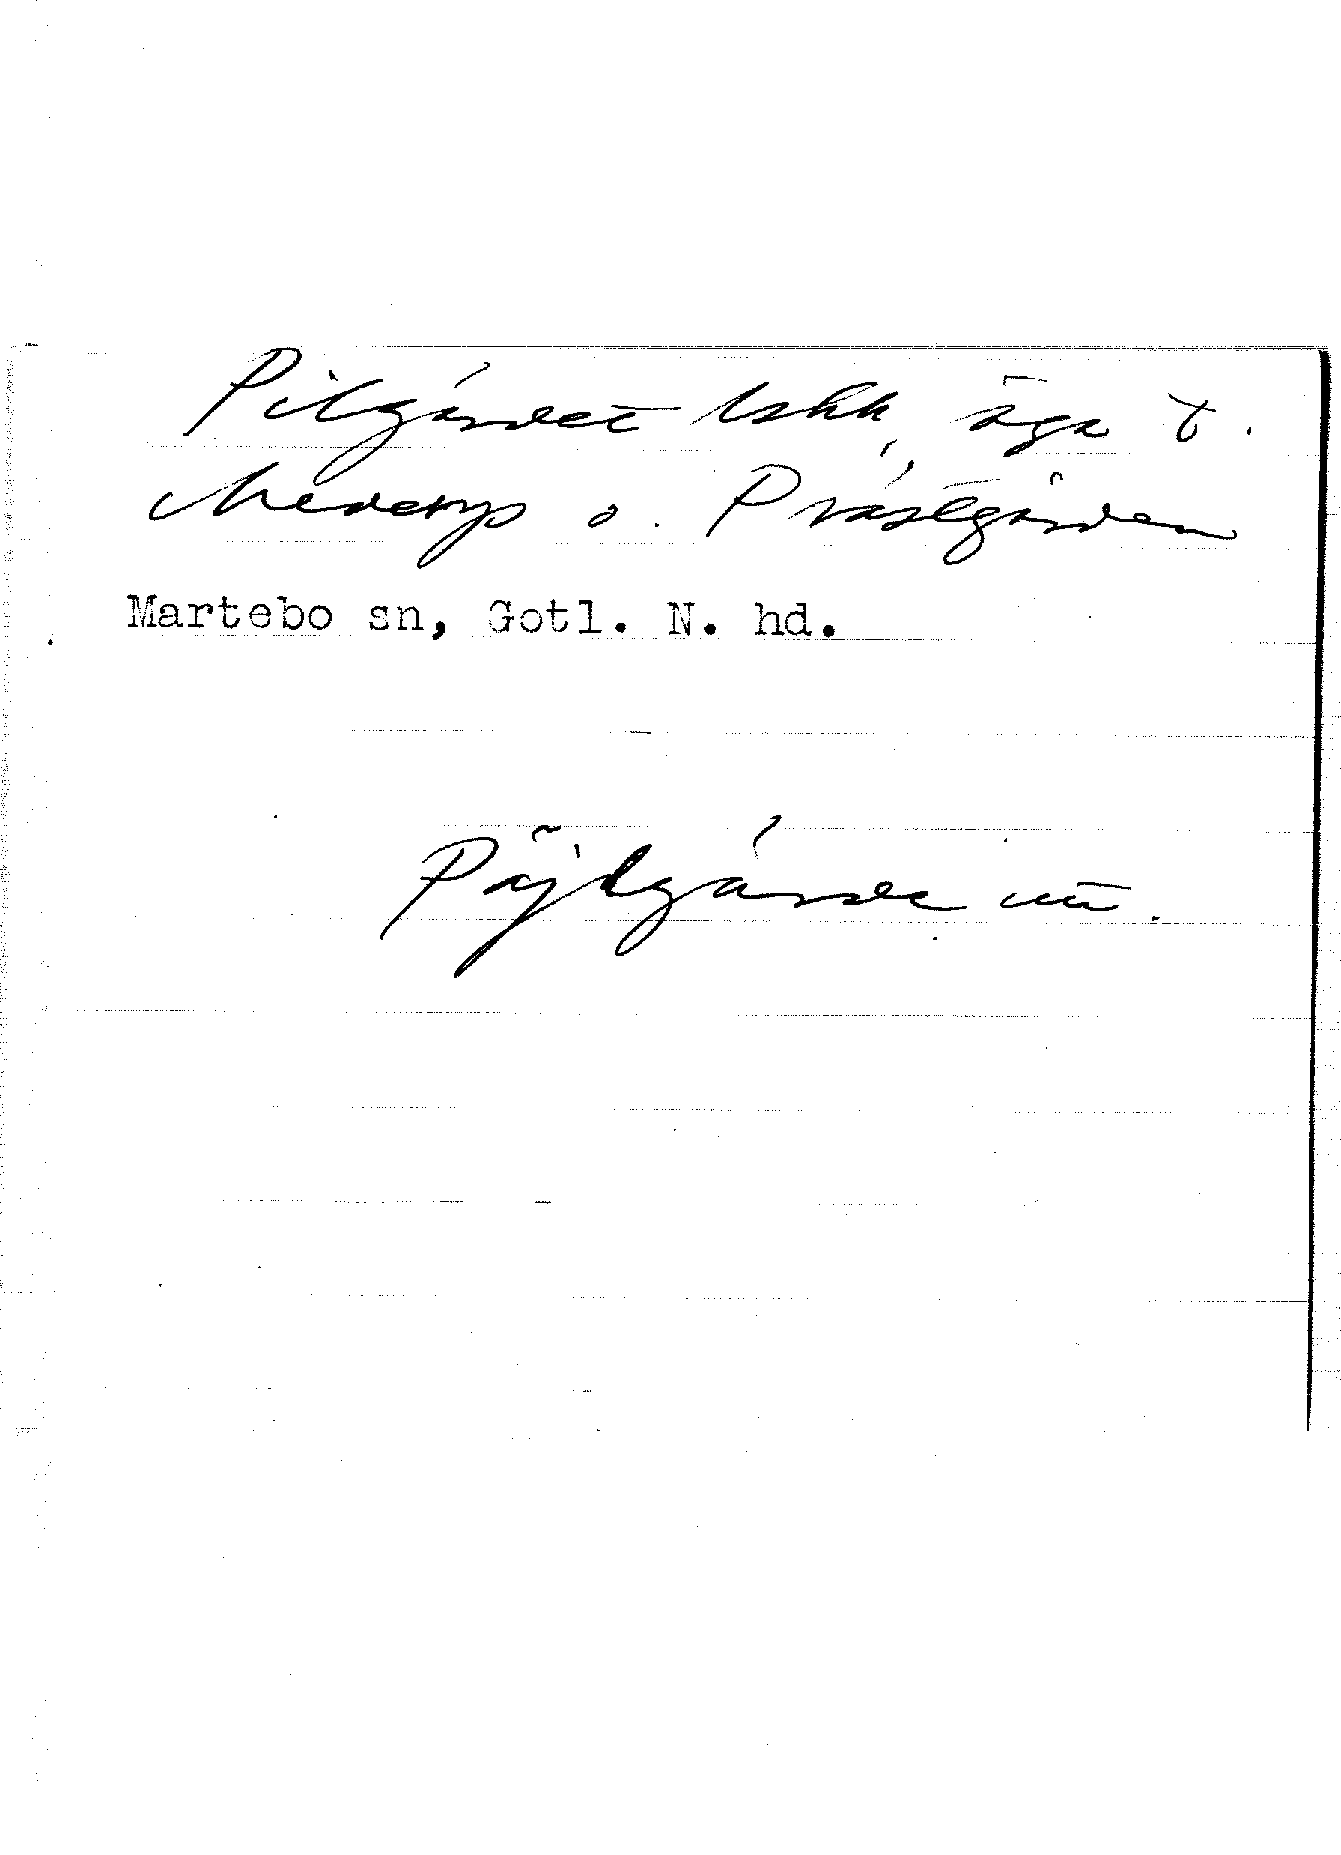 Pilgårdet äga t.
o. Prästgården
Martebo sn, Gotl. N. hd.
Päjlgårde